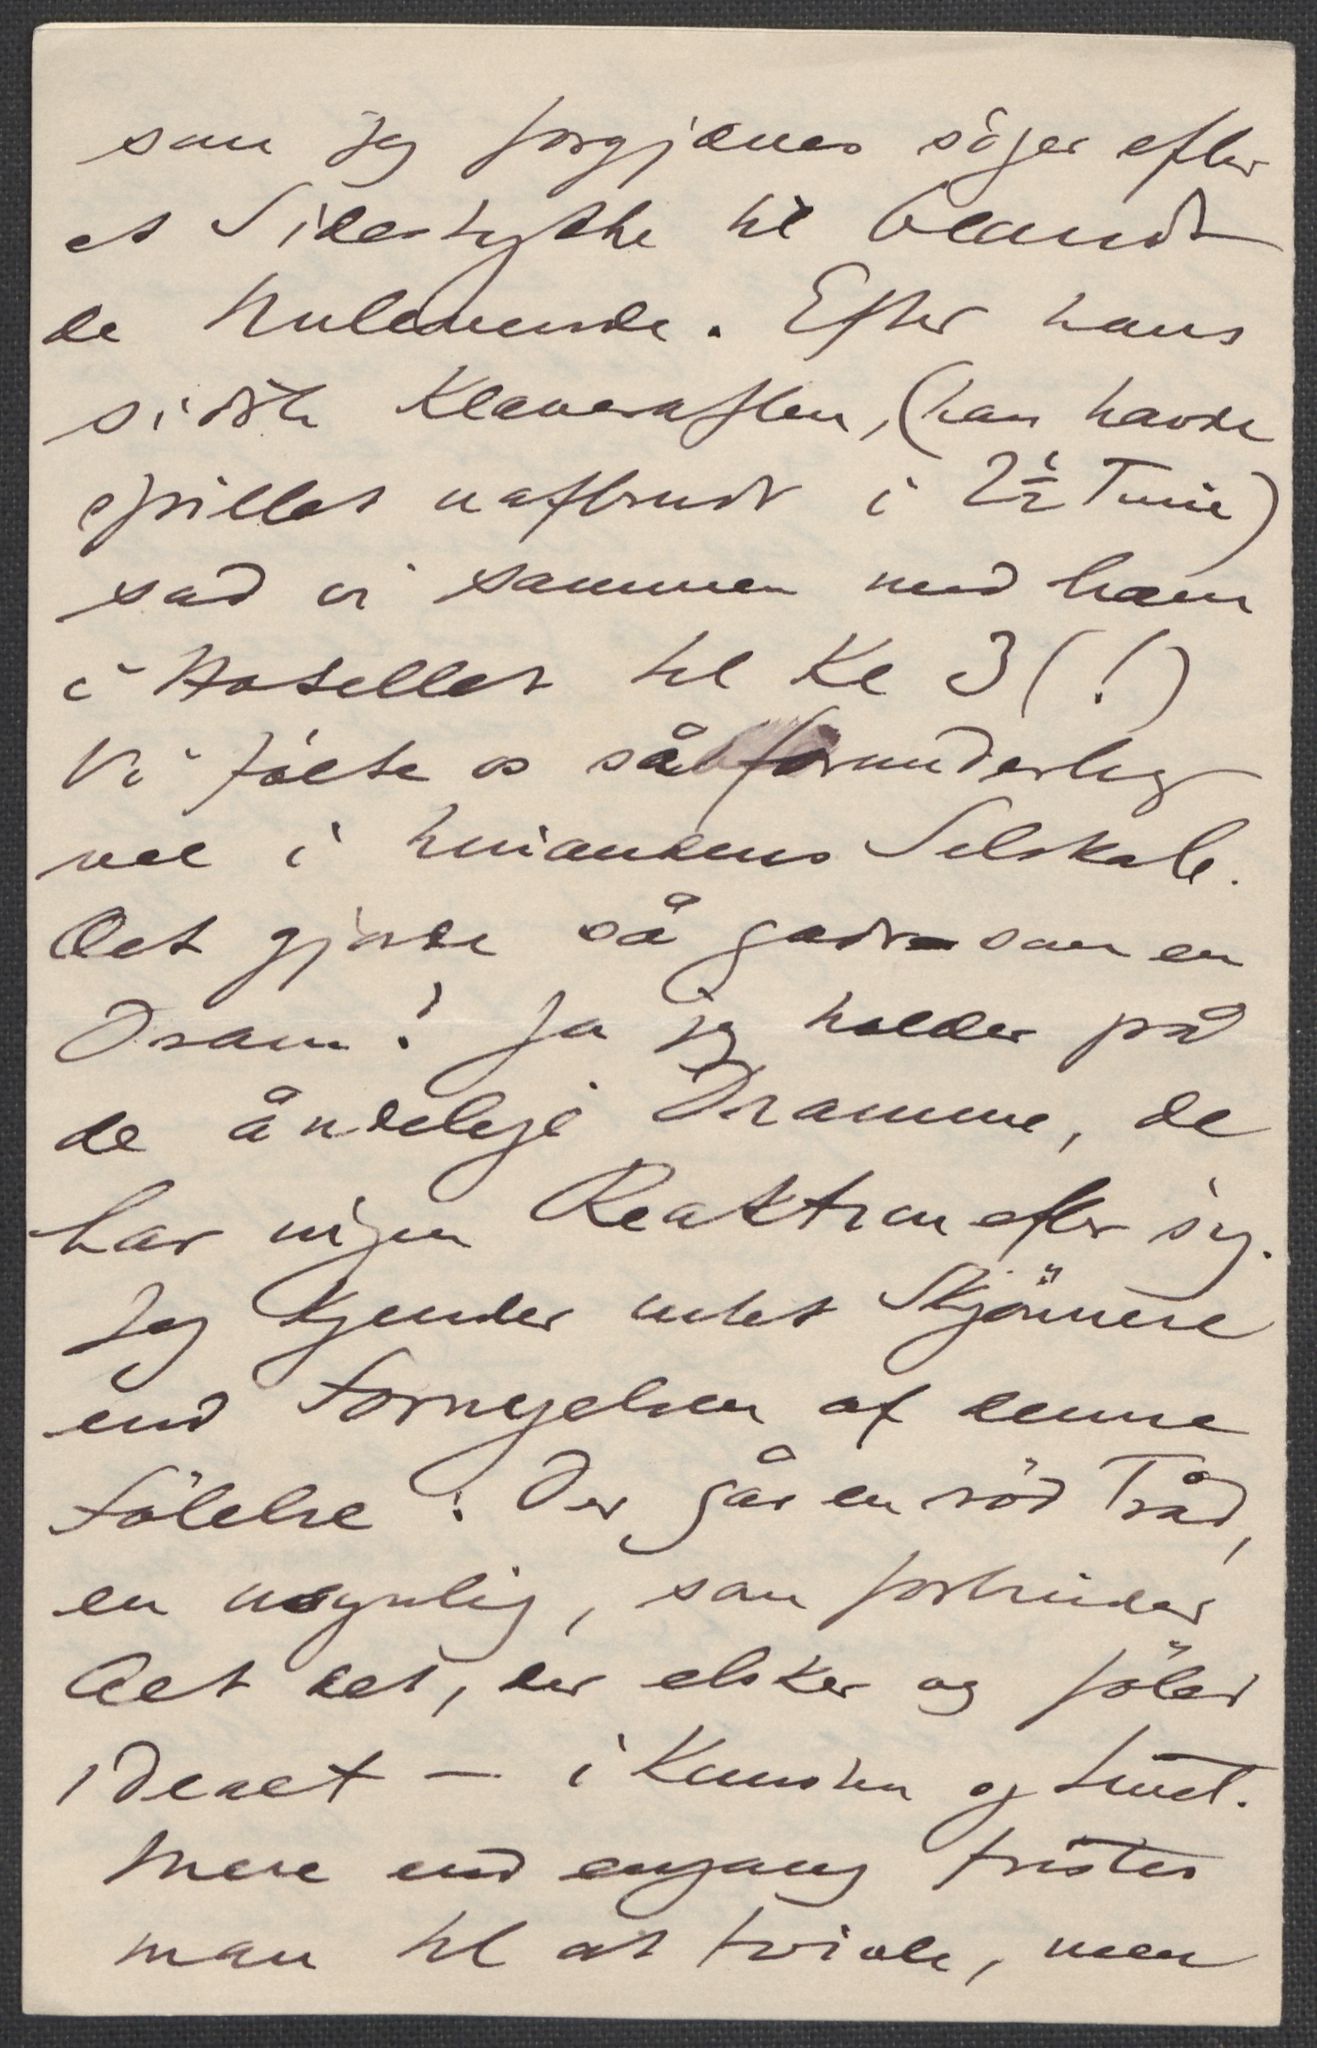 som jeg forgjæves söger efter
et Sidestykke til blandt
de Nulevende. Efter hans
sidste Klaveraften, (han havde
spillet uafbrudt i 2½ Time)
sad vi sammen med ham
i Hotellet til Kl 3 (!)
Vi fölte os så forunderlig
vel i hinandens Selskab.
Det gjorde så godt som en
Dram! Ja jeg holder på
de åndelige Dramme, de
har ingen Reaktion efter sig.
Jeg kjender intet Skjönnere
end Fornyelsen af denne
Fölelse: Der går en röd Tråd,
en usynlig, som forbinder
Alt det, der elsker og föler
idealt — i Kunsten og Livet.
Mere end engang fristes
man til at tvivle, men